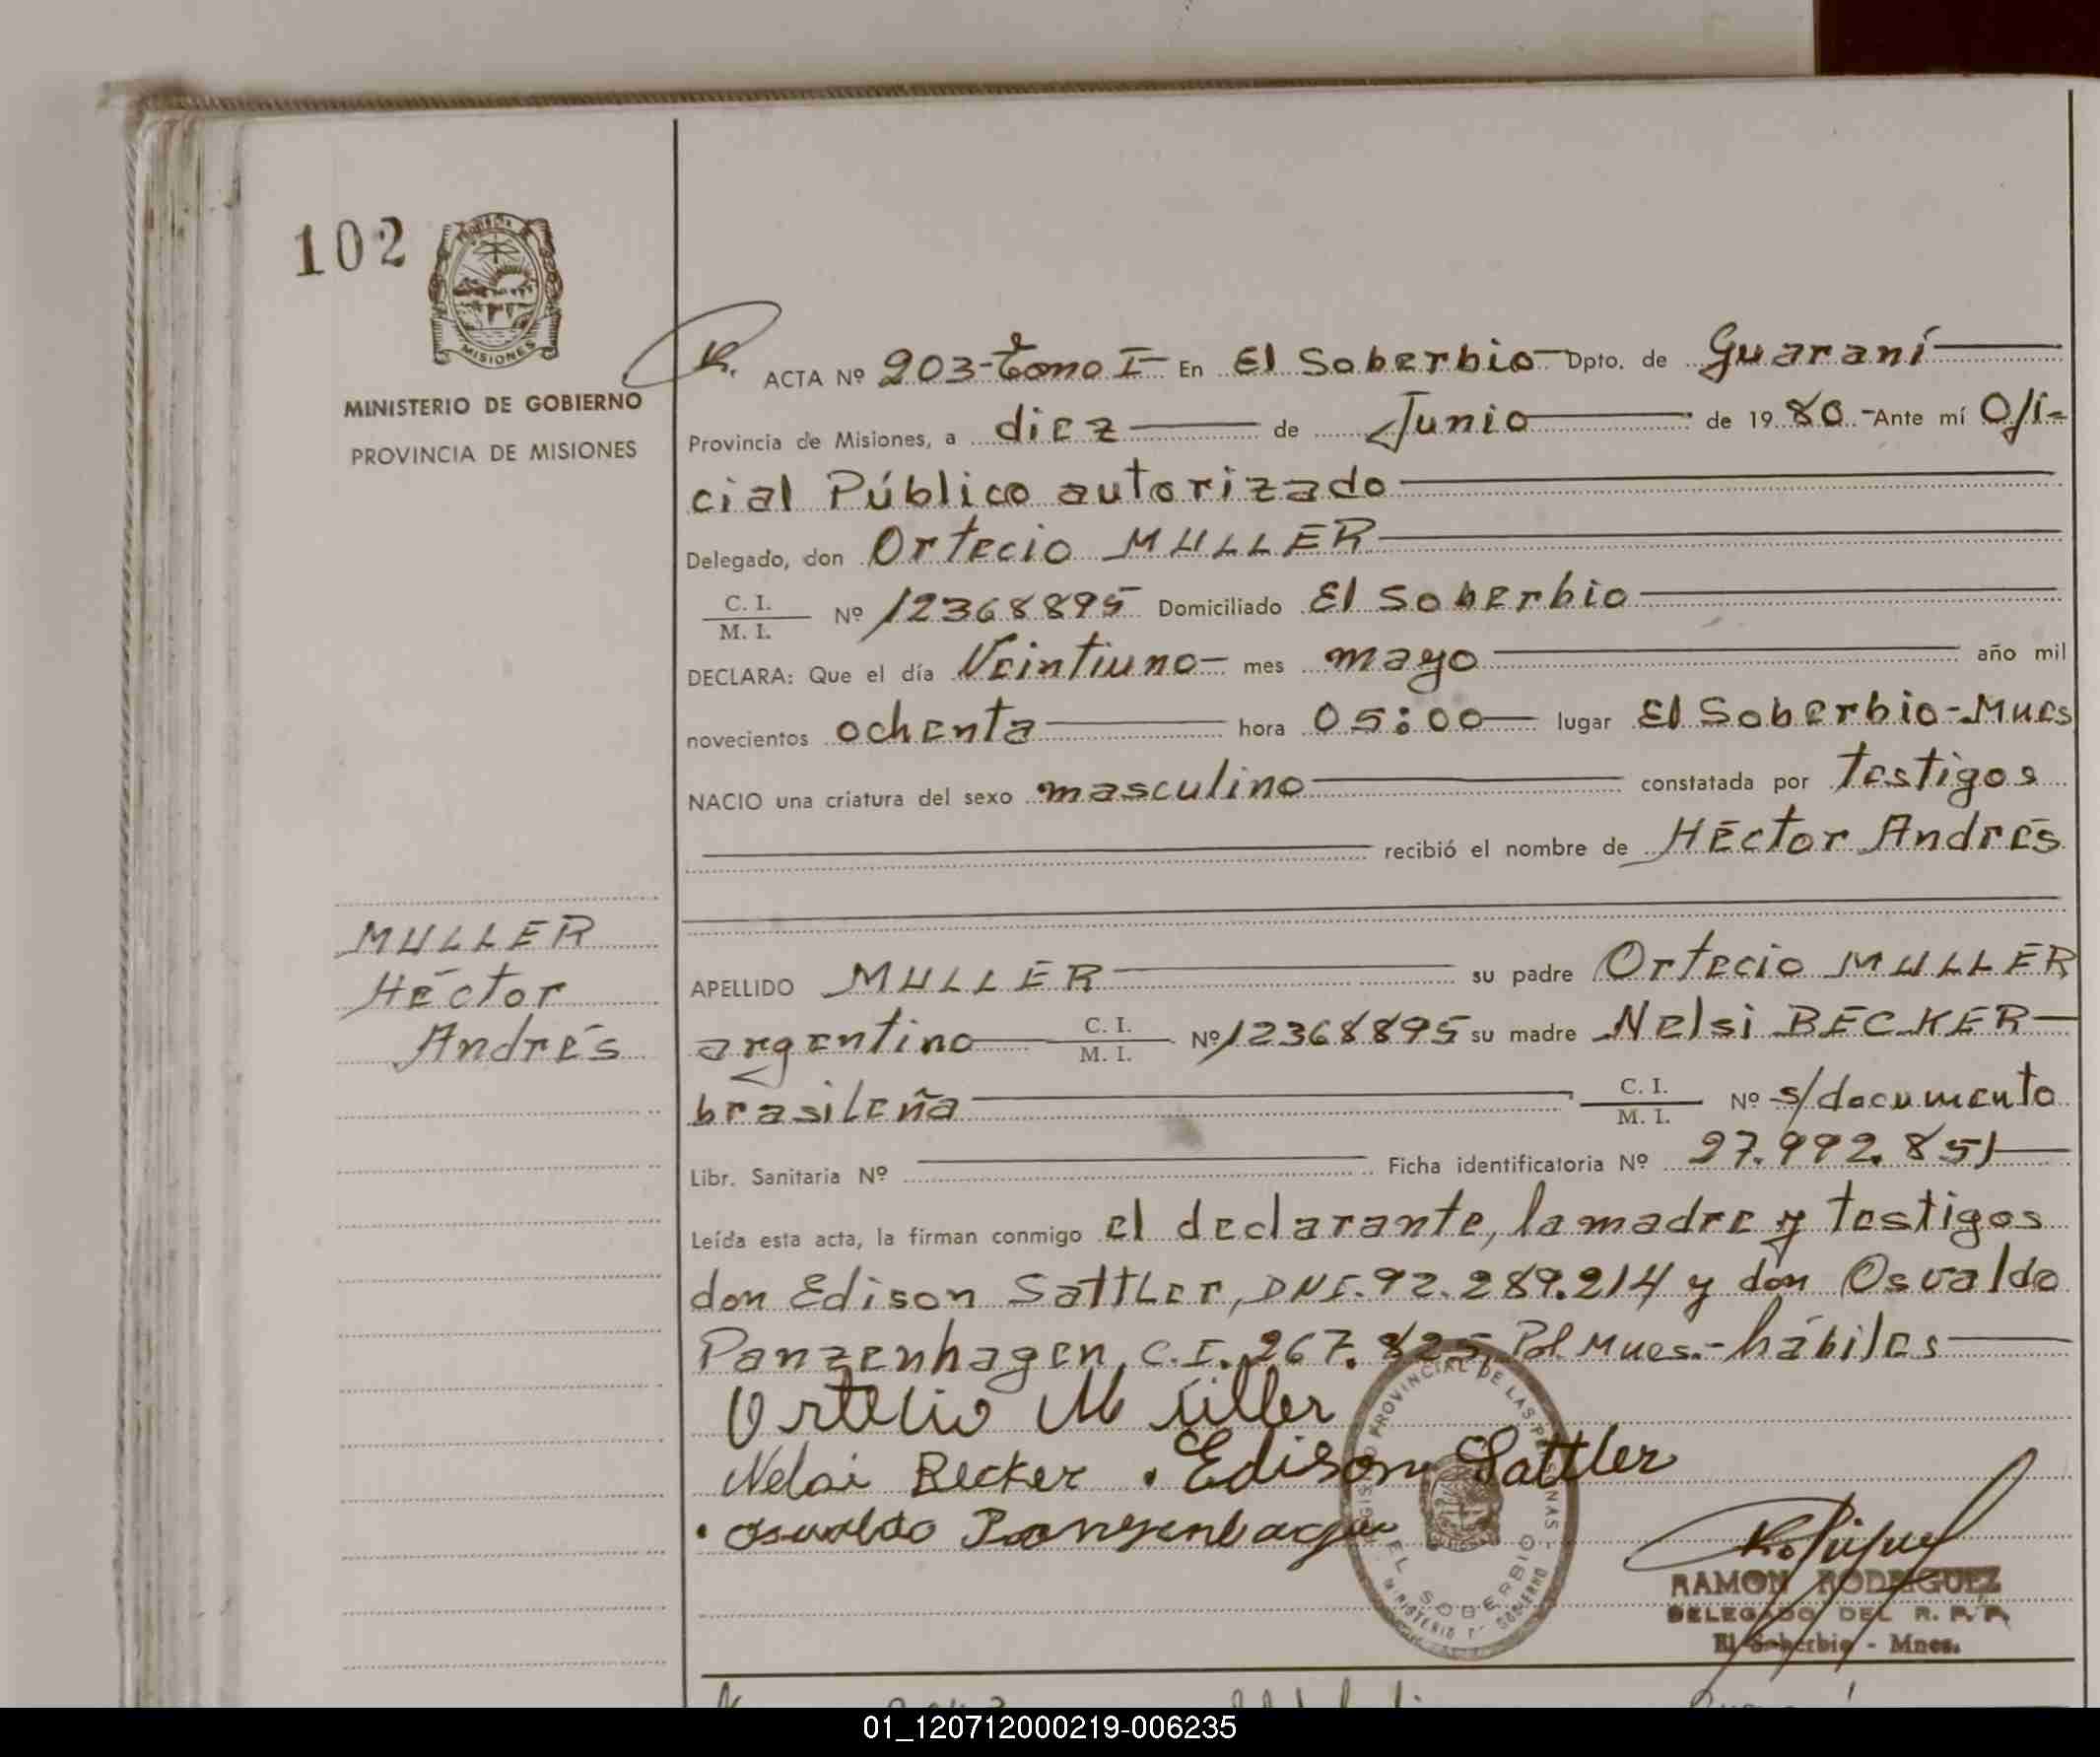 102
MISIONES
MINISTERIO DE GOBIERNO
PROVINCIA DE MISIONES
MULLER
Héctor
Andrés
R. ACTA Nº 203-Tomo I- En El Soberbio- Dpto. de Guaraní
Provincia de Misiones, a diez de Junio de 1980.- Ante mí Ofi=
cial Público autorizado
Delegado, don Ortecio MULLER
C. I. / M. I. Nº 12368895 Domiciliado El Soberbio
DECLARA: Que el día Veintiuno- mes mayo año mil
novecientos ochenta hora 05:00 lugar El Soberbio-Mnes
NACIO una criatura del sexo masculino constatada por testigos
recibió el nombre de Héctor Andrés
APELLIDO MULLER su padre Ortecio MULLER
argentino C. I. / M. I. Nº 12368895 su madre Nelsi BECKER
brasileña C. I. / M. I. Nº s/documento
Libr. Sanitaria Nº Ficha identificatoria Nº 27.992.851
Leída esta acta, la firman conmigo el declarante, la madre y testigos
don Edison Sattler, DNI. 92.289.214 y don Osvaldo
Panzenhagen, C.I. 267.825, Pol Mnes.- hábiles
Ortecio Müller
Nelsi Becker . Edison Sattler
. Osvaldo Panzenhagen
REGISTRO PROVINCIAL DE LAS PERSONAS - EL SOBERBIO
MINISTERIO DE GOBIERNO
RAMON RODRIGUEZ
DELEGADO DEL R. P. P.
El Soberbio - Mnes.
01_120712000219-006235